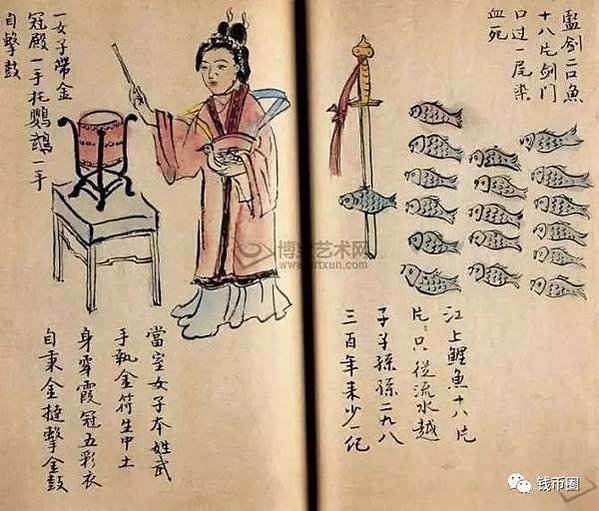 剑二口魚
十八片剑門
口过一尾染
血死
江上鲤魚十八片
片〻只從流水越
子子孫孫二九八
三百年来少一纪
一女子帶金
冠殿一手托鵡一手
自擊鼓
當室女子本姓武
手執金符生中土
身穿霞冠五彩衣
自秉金撾擊金鼓
博宝艺术网
www.artxun.com
钱币圈